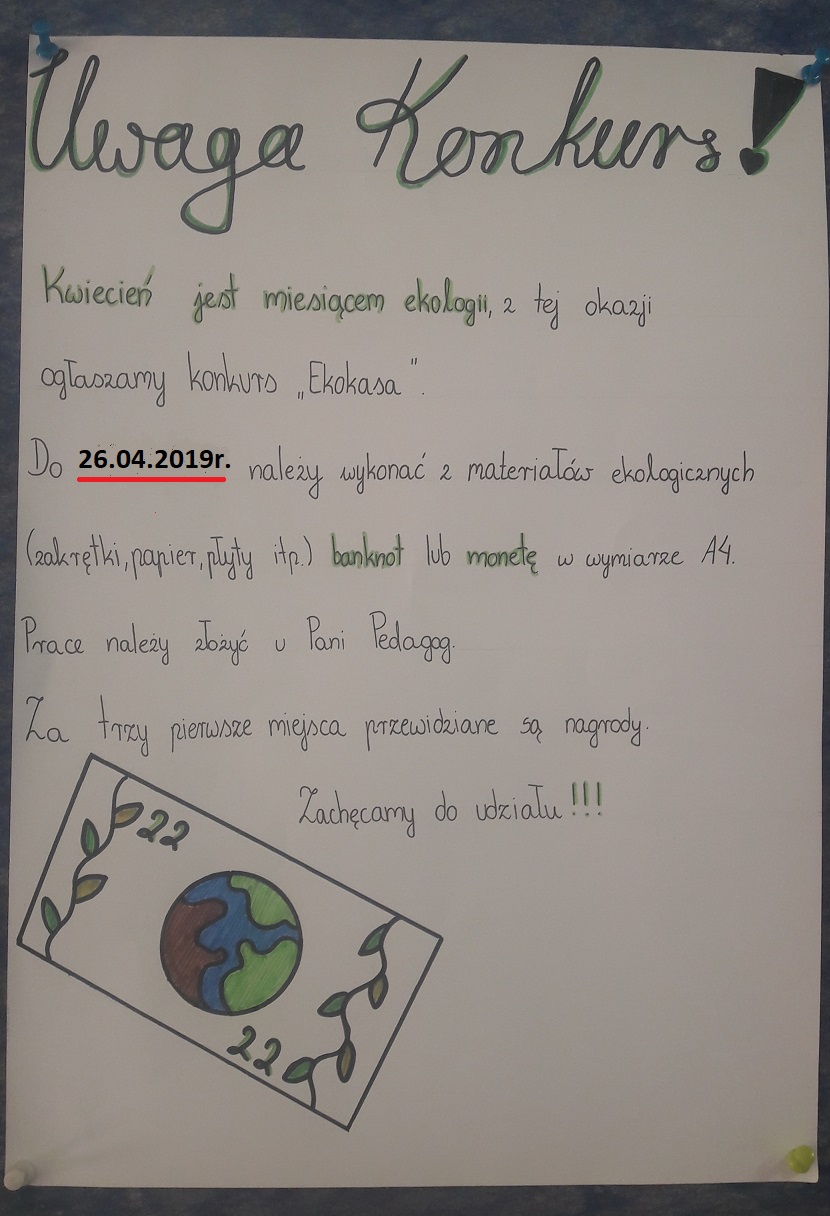 Uwaga Konkurs!
Kwiecień jest miesiącem ekologii, z tej okazji
ogłaszamy konkurs „Ekokasa”.
Do 26.04.2019r. należy wykonać z materiałów ekologicznych
(zakrętki, papier, płyty itp.) banknot lub monetę w wymiarze A4.
Prace należy złożyć u Pani Pedagog.
Za trzy pierwsze miejsca przewidziane są nagrody.
Zachęcamy do udziału!!!
22
22